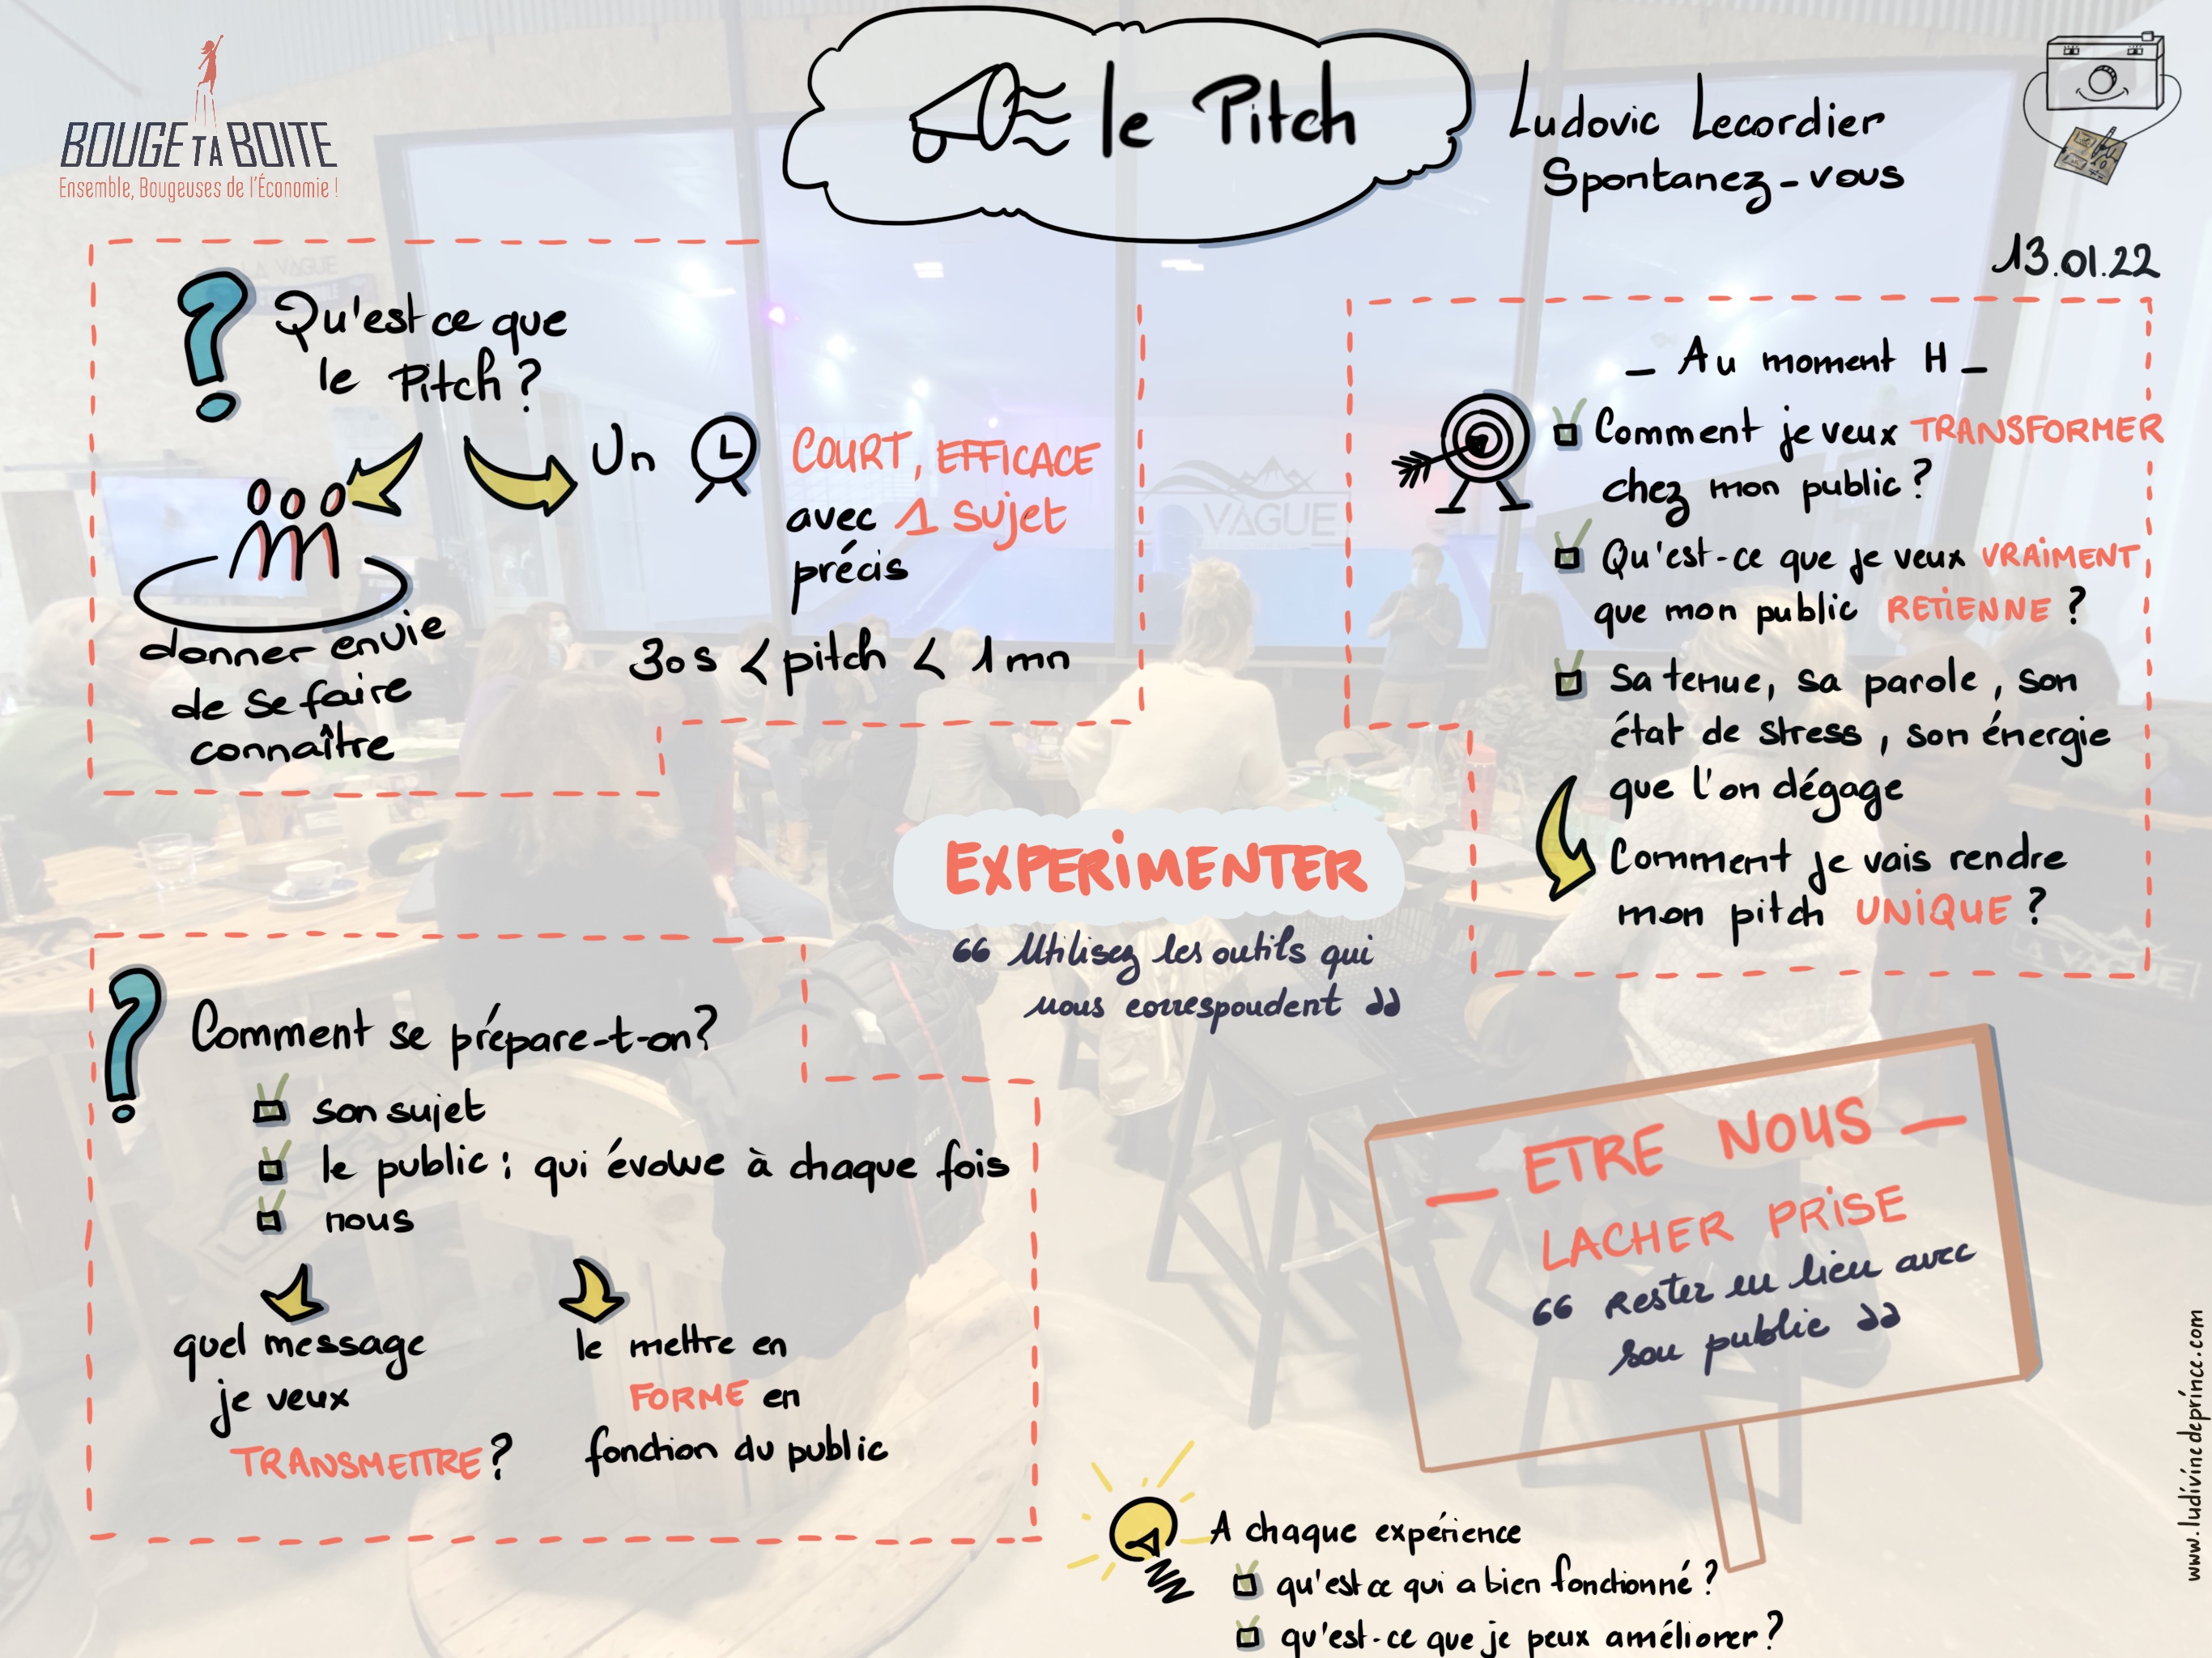 BOUGE TA BOITE
Ensemble, Bougeuses de l'Économie !
le Pitch
Ludovic Lecordier
Spontanez-vous
13.01.22
Qu'est ce que
le Pitch ?
Un
COURT, EFFICACE
avec 1 sujet
précis
30s < pitch < 1mn
donner envie
de se faire
connaître
_ Au moment H _
Comment je veux TRANSFORMER
chez mon public ?
Qu'est-ce que je veux VRAIMENT
que mon public RETIENNE ?
Sa tenue, sa parole, son
état de stress, son énergie
que l'on dégage
Comment je vais rendre
mon pitch UNIQUE ?
VAGUE
LA VAGUE
EXPERIMENTER
66 Utilisez les outils qui
nous correspondent
Comment se prépare-t-on?
son sujet
le public : qui évolue à chaque fois
nous
quel message
je veux
TRANSMETTRE ?
le mettre en
FORME en
fonction du public
— ETRE NOUS —
LACHER PRISE
66 Rester en lien avec
son public
A chaque expérience
qu'est ce qui a bien fonctionné ?
qu'est-ce que je peux améliorer ?
www.ludivinedeprince.com